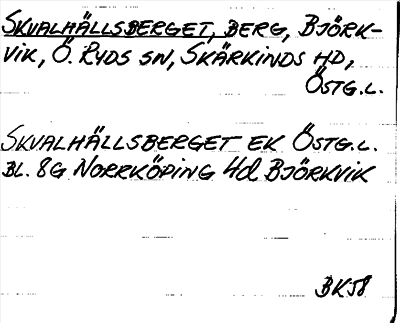 SKVALHÄLLSBERGET, BERG, BJÖRK-
VIK, Ö. RYDS SN, SKÄRKINDS HD,
ÖSTG.L.
SKVALHÄLLSBERGET EK ÖSTG.L.
BL. 8G NORRKÖPING 4d BJÖRKVIK
BK58